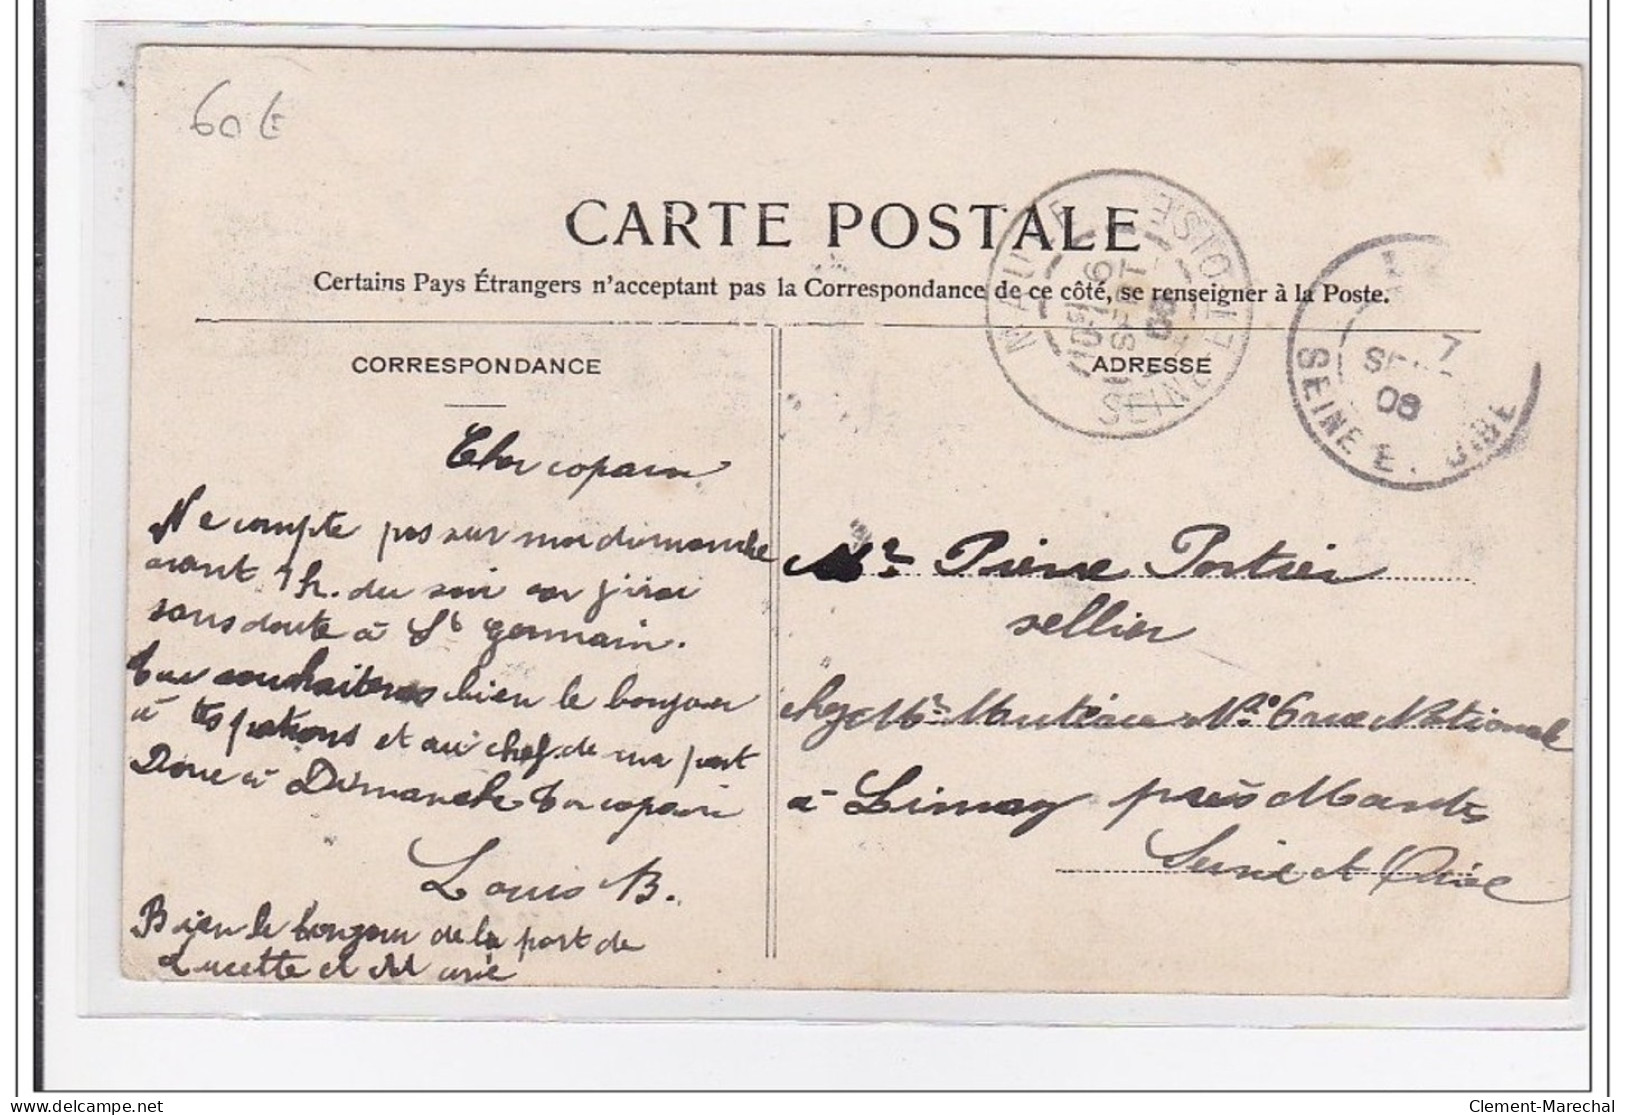 60 €
CARTE POSTALE
Certains Pays Étrangers n'acceptent pas la Correspondance de ce côté, se renseigner à la Poste.
MAULE SEINE ET OISE
10 16
SEPT
08
7
SEPT
08
SEINE ET OISE
CORRESPONDANCE
ADRESSE
Cher copain
Ne compte pas sur moi dimanche
avant 7h. du soir car j'irai
sans doute à St Germain.
Tu souhaiteras bien le bonjour
à tes patrons et au chef de ma part
Donc à Dimanche Ton copain
Louis B.
Bien le bonjour de la part de
Lucette et Marie
Mr Pierre Portier
sellier
chez Mr No 6 rue National
à Limay près Mantes
Seine et Oise
Clement-Marechal